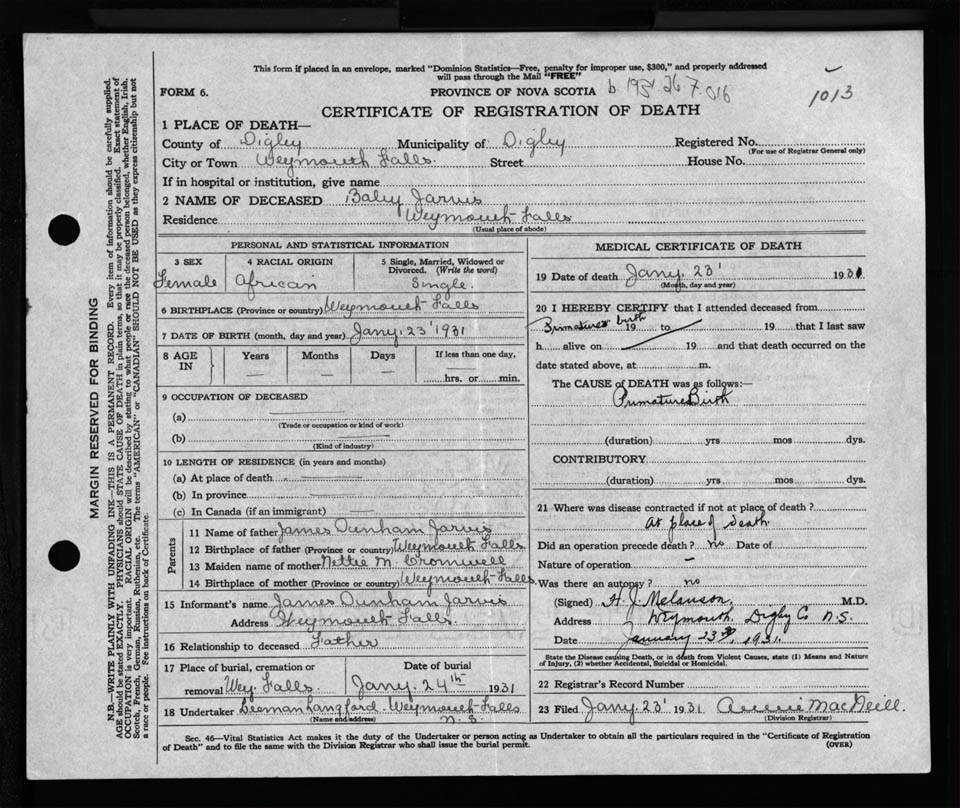 This form if placed in an envelope, marked "Dominion Statistics—Free, penalty for improper use, $300," and properly addressed
will pass through the Mail "FREE"
FORM 6.
PROVINCE OF NOVA SCOTIA
1013
CERTIFICATE OF REGISTRATION OF DEATH
1 PLACE OF DEATH—
County of Digby Municipality of Digby Registered No.
(For use of Registrar General only)
City or Town Weymouth Falls. Street House No.
If in hospital or institution, give name
2 NAME OF DECEASED Baby Jarvis
Residence Weymouth Falls
(Usual place of abode)
PERSONAL AND STATISTICAL INFORMATION
3 SEX 4 RACIAL ORIGIN 5 Single, Married, Widowed or
Divorced. (Write the word)
Female African Single.
6 BIRTHPLACE (Province or country) Weymouth Falls
7 DATE OF BIRTH (month, day and year) Jany. 23' 1931
8 AGE IN Years Months Days If less than one day,
— — — hrs. or min.
9 OCCUPATION OF DECEASED
(a)
(Trade or occupation or kind of work)
(b)
(Kind of industry)
10 LENGTH OF RESIDENCE (in years and months)
(a) At place of death
(b) In province
(c) In Canada (if an immigrant)
Parents
11 Name of father James Dunham Jarvis
12 Birthplace of father (Province or country) Weymouth Falls
13 Maiden name of mother Nettie M. Cromwell
14 Birthplace of mother (Province or country) Weymouth Falls
15 Informant's name James Dunham Jarvis
Address Weymouth Falls.
16 Relationship to deceased Father
17 Place of burial, cremation or Date of burial
removal Wey. Falls Jany. 24th 1931
18 Undertaker Langford. Weymouth Falls
(Name and address) N.S.
MEDICAL CERTIFICATE OF DEATH
19 Date of death Jany. 23' 1931
(Month, day and year)
20 I HEREBY CERTIFY that I attended deceased from
Primature birth 19 to 19 that I last saw
h alive on 19 and that death occurred on the
date stated above, at m.
The CAUSE OF DEATH was as follows:—
Primature Birth
(duration) yrs mos dys.
CONTRIBUTORY
(duration) yrs mos dys.
21 Where was disease contracted if not at place of death?
At place of death.
Did an operation precede death? no Date of
Nature of operation —
Was there an autopsy? no
(Signed) H. J. Melanson, M.D.
Address Weymouth Digby Co N.S.
Date January 23rd, 1931.
State the Disease causing Death, or in death from Violent Causes, state (1) Means and Nature
of Injury, (2) whether Accidental, Suicidal or Homicidal.
22 Registrar's Record Number
23 Filed Jany. 23' 1931 Annie MacNeill.
(Division Registrar)
Sec. 46—Vital Statistics Act makes it the duty of the Undertaker or person acting as Undertaker to obtain all the particulars required in the "Certificate of Registration
of Death" and to file the same with the Division Registrar who shall issue the burial permit.
(OVER)
MARGIN RESERVED FOR BINDING
N.B.—WRITE PLAINLY WITH UNFADING INK—THIS IS A PERMANENT RECORD. Every item of information should be carefully supplied.
AGE should be stated EXACTLY. PHYSICIANS should STATE CAUSE OF DEATH in plain terms, so that it may be properly classified. Exact statement of
OCCUPATION is very important. RACIAL ORIGIN will be described by stating to what people or race the deceased person belonged, whether English, Irish,
Scotch, French, German, Russian, Ruthenian, etc. The terms "AMERICAN" or "CANADIAN" SHOULD NOT BE USED as they express citizenship but not
a race or people. See instructions on back of Certificate.